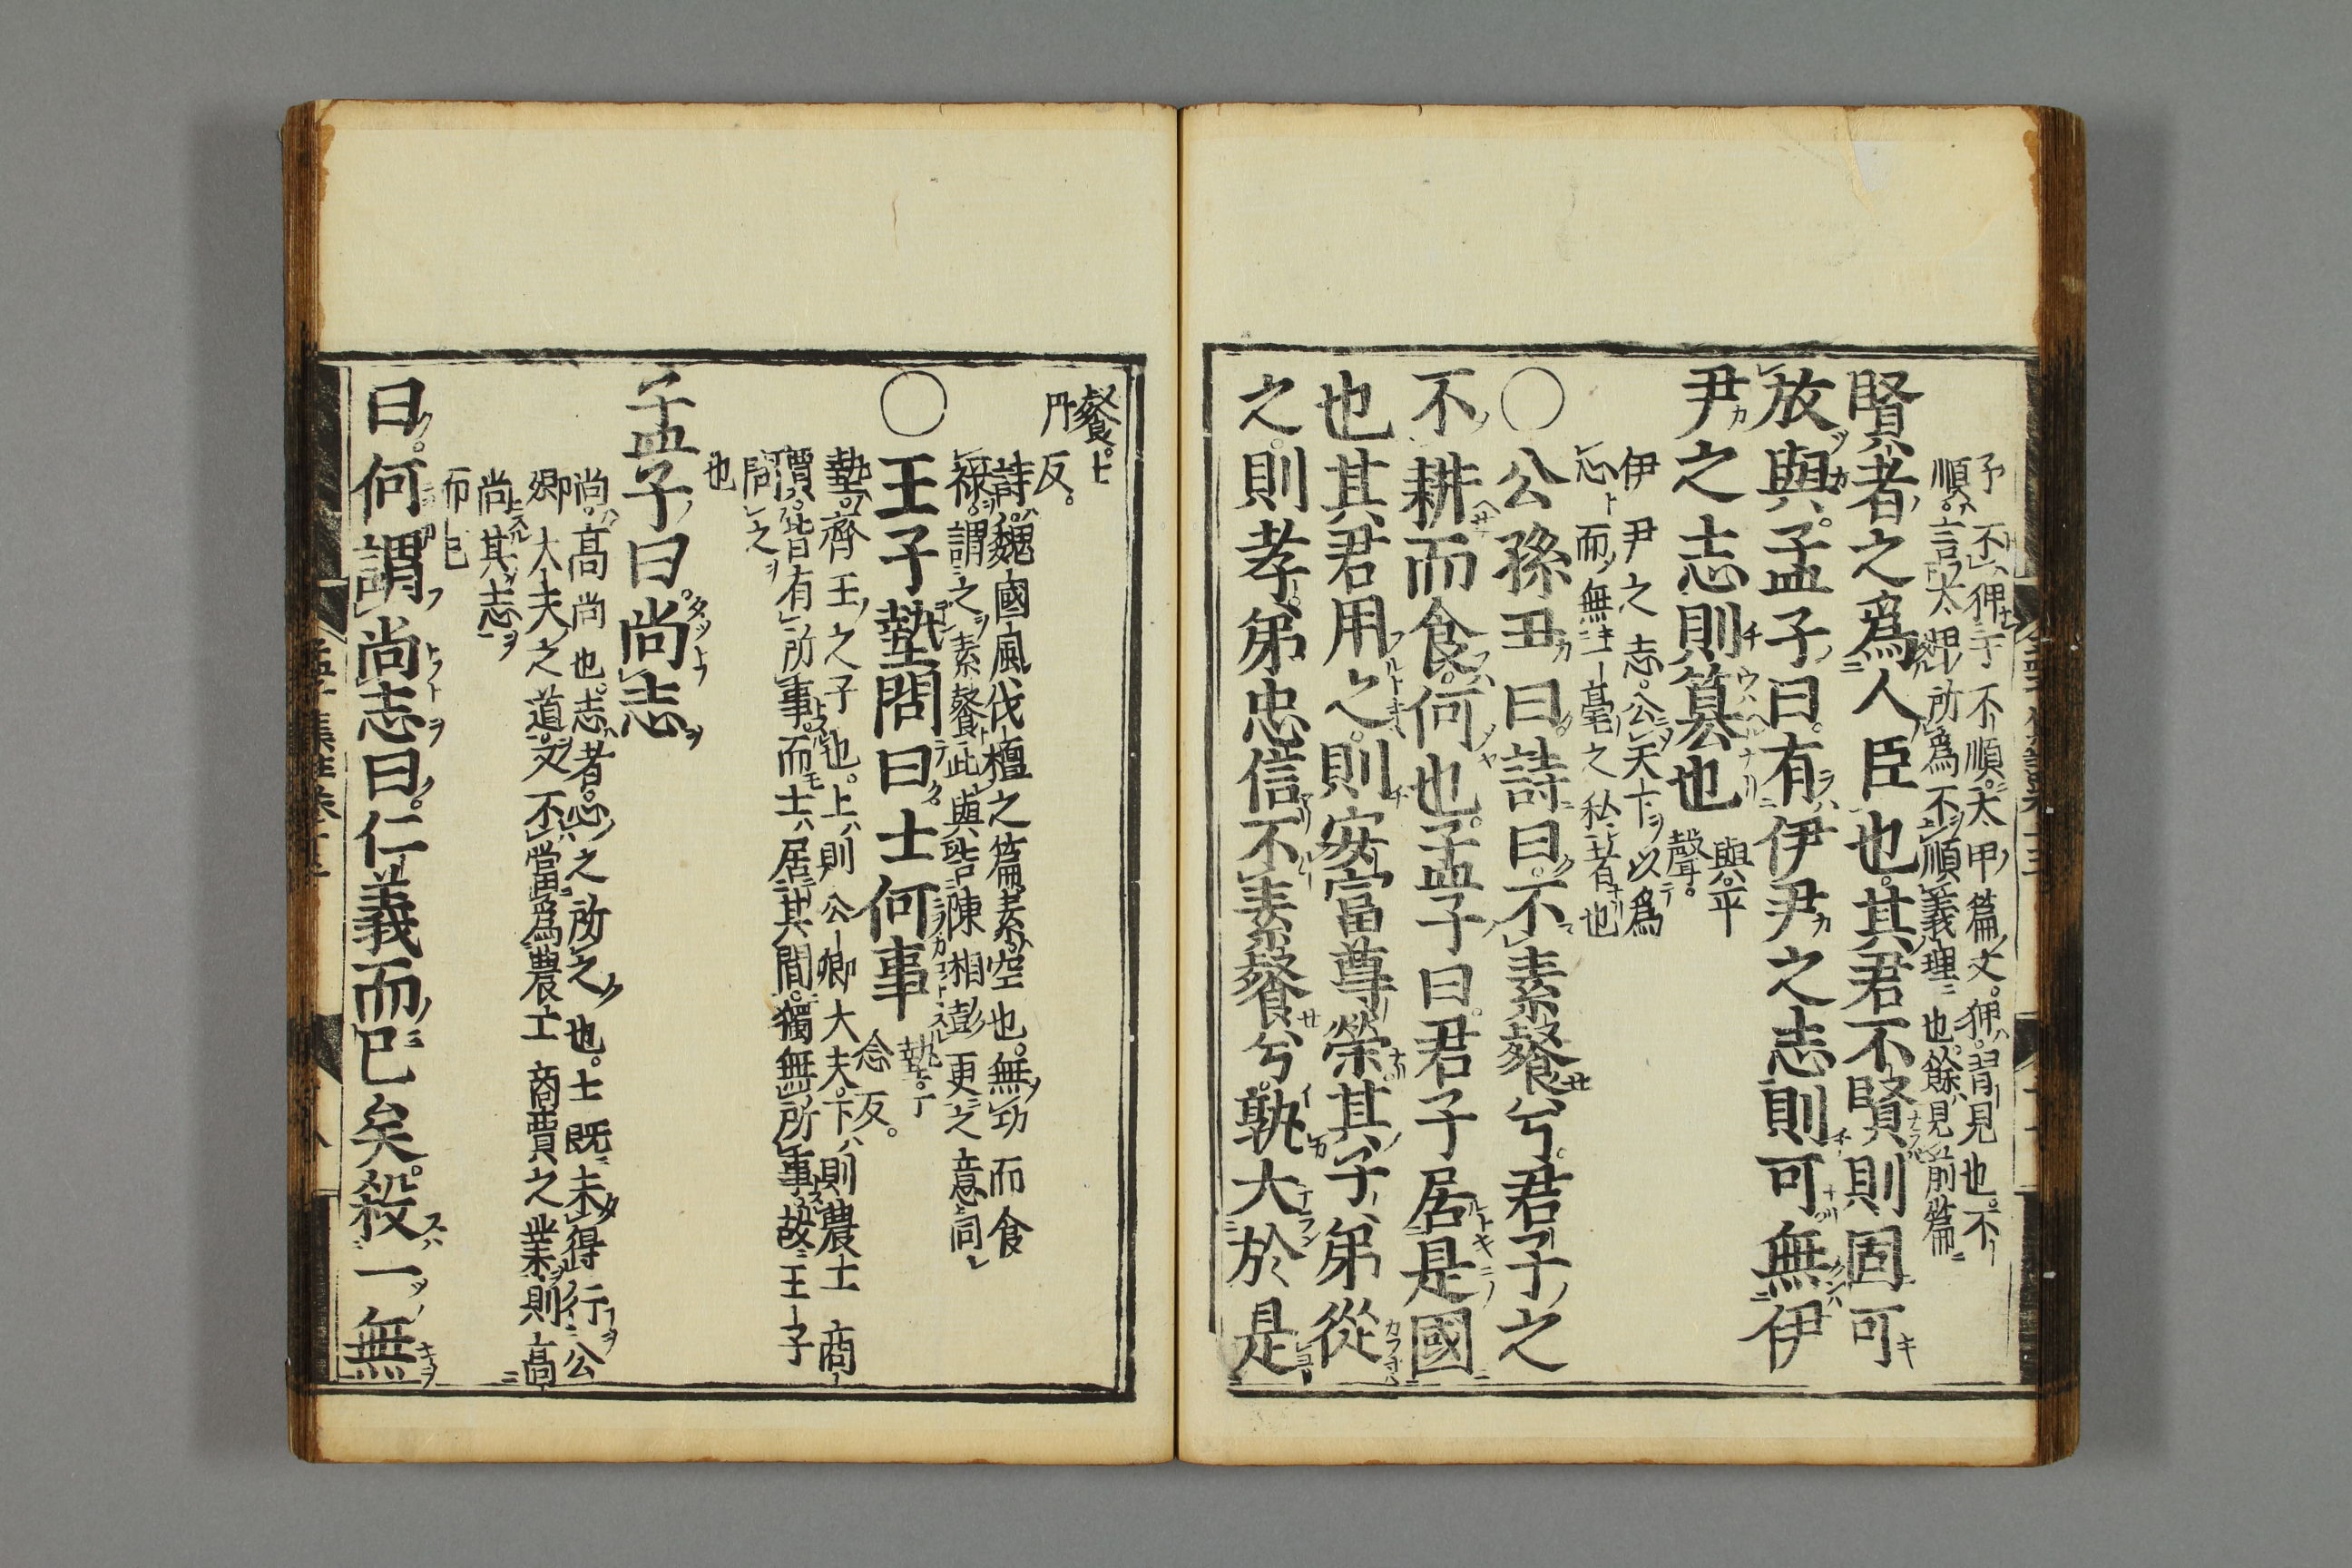 予不狎于不順太甲篇文狎習見也不
順言太甲所爲不順義理也餘見前篇
賢者之爲人臣也其君不賢則固可
放與孟子曰有伊尹之志則可無伊
尹之志則簒也
與平
聲
伊尹之志公天下以爲
心而無一毫之私者也
〇公孫丑曰詩曰不素餐兮君子之
不耕而食何也孟子曰君子居是國
也其君用之則安富尊榮其子弟從
之則孝弟忠信不素餐兮孰大於是
餐七
丹反
詩魏國風伐檀之篇素空也無功而食
祿謂之素餐此與告陳相彭更之意同
〇王子墊問曰士何事
墊丁
念反
墊齊王之子也上則公卿大夫下則農工商
賈皆有所事而士居其間獨無所事故王子
問之
也
孟子曰尚志
尚高尚也志者心之所之也士既未得行公
卿大夫之道又不當爲農工商賈之業則高
尚其志
而已
曰何謂尚志曰仁義而已矣殺一無